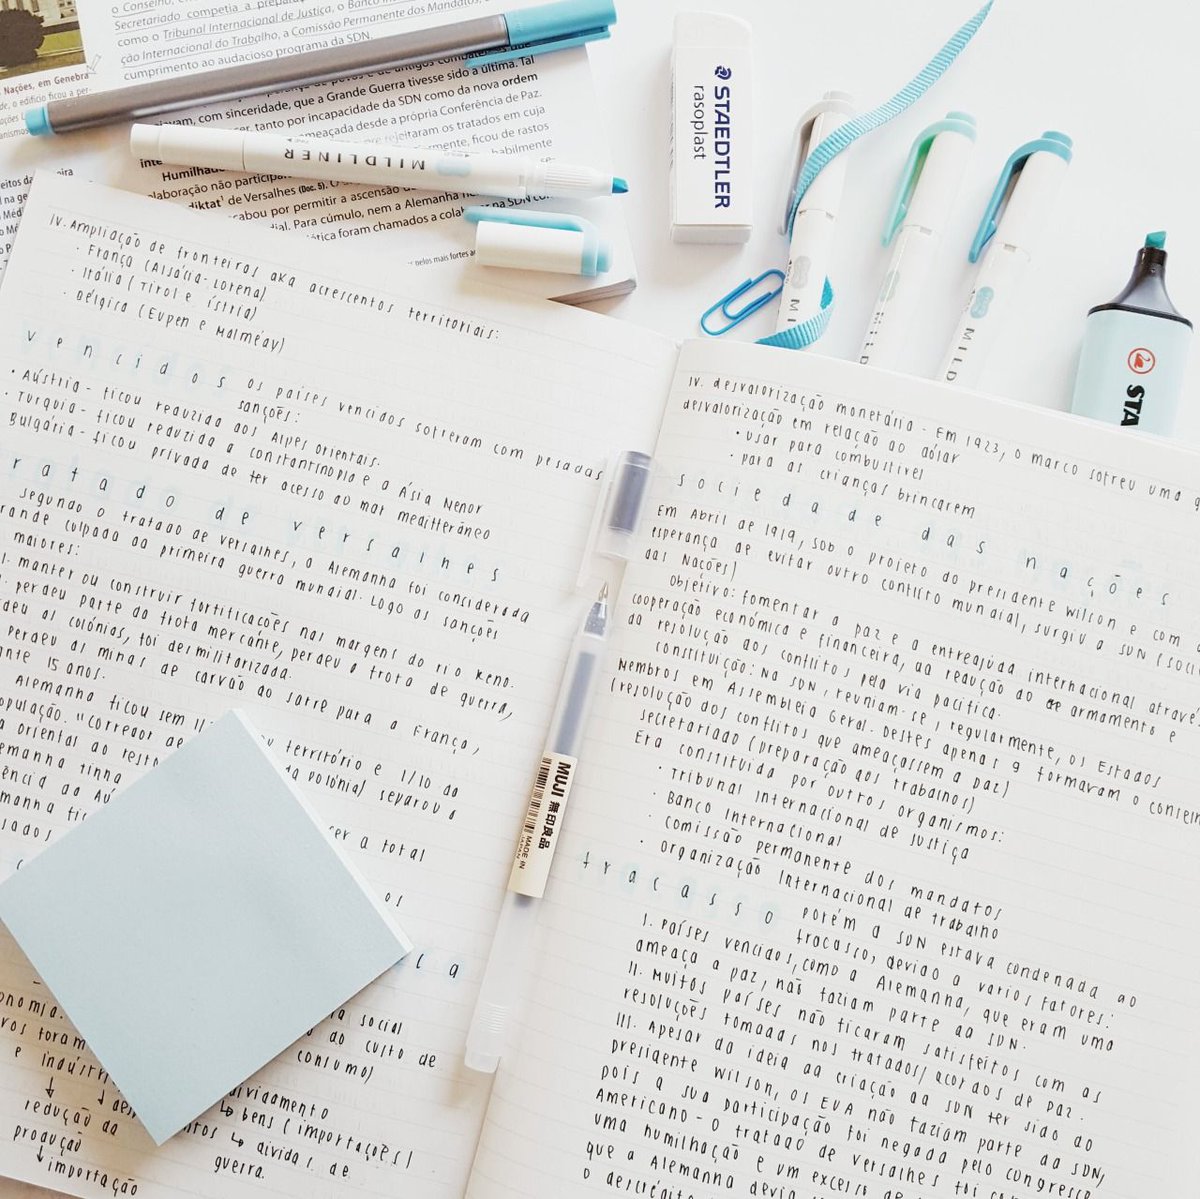 o Conselho,
Secretariado competia a
como o Tribunal Internacional de Justiça, o Banco
ção Internacional do Trabalho, a Comissão Permanente dos Mandatos,
cumprimento ao audacioso programa da SDN.
Nações, em Genebra
, o edifício ficou a per-
que a Grande Guerra tivesse sido a última. Tal
com sinceridade,
tanto por incapacidade da SDN como da nova ordem
ameaçada desde a própria Conferência de Paz.
rejeitaram os tratados em cuja
ficou de rastos
habilmente
Humilhad
laboração não particip
diktat' de Versalhes (Doc. 5). O
cabou por permitir a ascensão
dial. Para cúmulo, nem a Alemanha
foram chamados a colabora na SDN com
MILDLINER
STAEDTLER
rasoplast
MILD
MILD
MILD
STA
IV. Ampliação de fronteiras aka acrescentos territoriais:
· França (Alsácia-Lorena)
· Itália (Tirol e ístria)
· Bélgica (Eupen e Malméay)
vencidos os países vencidos sofreram com pesadas
sanções:
· Áustria - ficou reduzida aos Alpes orientais.
· Turquia - ficou reduzida a constantinopla e a Ásia Menor
Bulgária - ficou privada de ter acesso ao mar mediterrâneo
ratado de versalhes
Segundo o tratado de versalhes, a Alemanha foi considerada
rande culpada da primeira guerra mundial. Logo as sanções
maiores:
1. manter ou construir fortificações nas margens do rio Reno.
perdeu parte da frota mercante, perdeu a frota de guerra,
deu as colónias, foi desmilitarizada.
perdeu as minas de carvão do sarre para a França,
ante 15 anos.
Alemanha ficou sem 1/ território e 1/10 da
opulação. "Corredor de da polónia) separou a
oriental do resto
emanha tinha
ência da Au
manha fi cer a total
sados
os
ca
onomia. ra social
vos foram do culto de
e indústri consumo)
↓ ↓ des dividamento
redução da ↳ bens (importações)
produção ntos ↳ dividas de
↓ importação guerra.
MUJI 無印良品
MADE IN JAPAN
IV. desvalorização monetária - Em 1923, o marco sofreu uma g
desvalorização em relação ao dólar
· usar para combustível
· para as crianças brincarem
sociedade das nações
Em Abril de 1919, sob o projeto do presidente Wilson e com a
esperança de evitar outro conflito mundial, surgiu a SDN (soci
das Nações)
Objetivo: fomentar a paz e a entreajuda internacional atravé
cooperação económica e financeira, da redução do armamento e
da resolução dos conflitos pela via pacífica.
constituição: Na SDN, reuniam-se, regularmente, os Estados
Membros em Assembleia Geral. Destes apenas 9 formavam o conselh
(resolução dos conflitos que ameaçassem a paz)
secretariado (preparação dos trabalhos)
Era constituída por outros organismos:
· Tribunal Internacional de Justiça
· Banco Internacional
· Comissão permanente dos mandatos
· Organização Internacional de trabalho
fracasso porém a SDN estava condenada ao
fracasso, devido a vários fatores:
I. Países vencidos, como a Alemanha, que eram uma
ameaça a paz, não faziam parte da SDN.
II. Muitos países não ficaram satisfeitos com as
resoluções tomadas nos tratados/acordos de paz.
III. Apesar da ideia da criação da SDN ter sido do
presidente Wilson, os EUA não faziam parte da SDN,
pois a sua participação foi negada pelo congresso
Americano - o tratado de versalhes foi
uma humilhação e um excesso de
que a Alemanha devia
o descrédit